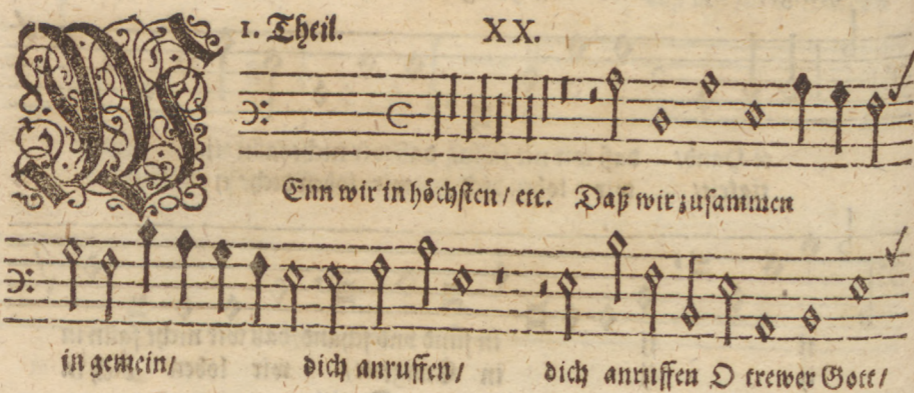 1. Theil. XX.
WEnn wir in höchsten / etc. Daß wir zusammen
in gemein / dich anruffen / dich anruffen O trewer Gott /